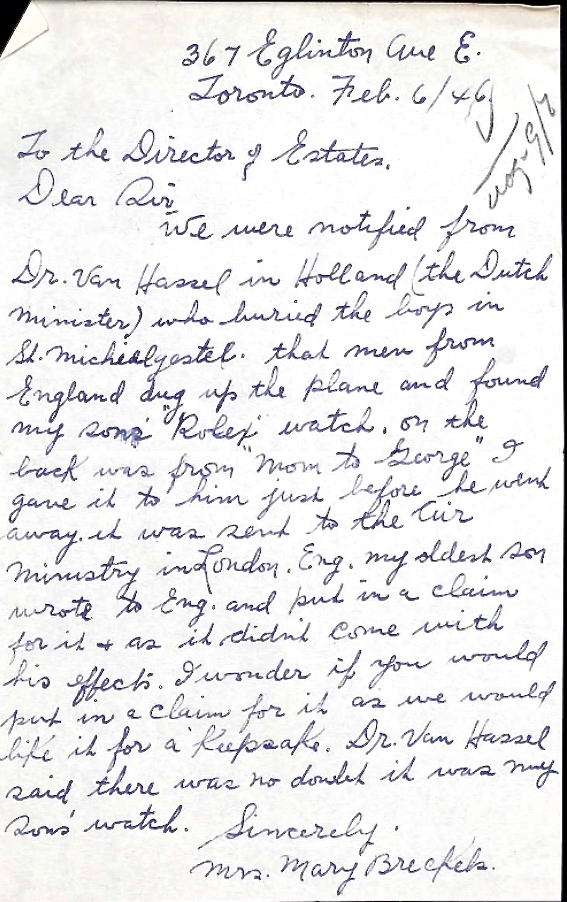 367 Eglinton Ave E.
Toronto. Feb. 6/46
To the Director of Estates.
Dear Sir
We were notified from
Dr. Van Hassel in Holland (the Dutch
minister) who buried the boys in
St. Michealgestel. that men from
England dug up the plane and found
my sons "Rolex" watch. on the
back was from "Mom to George" I
gave it to him just before he went
away. it was sent to the Air
Ministry in London. Eng. my oldest son
wrote to Eng. and put in a claim
for it + as it didn't come with
his effects. I wonder if you would
put in a claim for it as we would
like it for a Keepsake. Dr. Van Hassel
said there was no doubt it was my
sons' watch.
Sincerely.
Mrs. Mary Breckels.